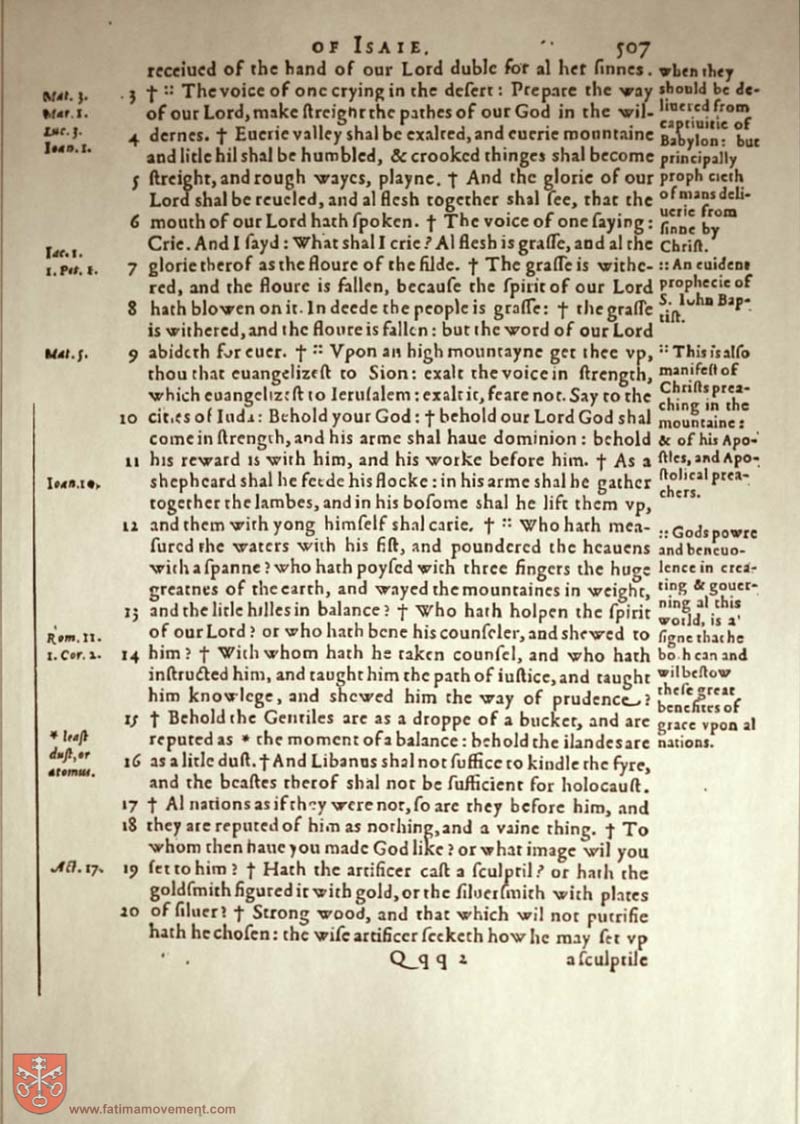 OF ISAIE. 507
receiued of the hand of our Lord duble for al her ſinnes.
3 † :: The voice of one crying in the deſert: Prepare the way
of our Lord, make ſtreight the pathes of our God in the wil-
4 dernes. † Euerie valley shal be exalted, and euerie mountaine
and litle hil shal be humbled, & crooked thinges shal become
5 ſtreight, and rough wayes, playne. † And the glorie of our
Lord shal be reueled, and al flesh together shal ſee, that the
6 mouth of our Lord hath ſpoken. † The voice of one ſaying:
Crie. And I ſayd: What shal I crie? Al flesh is graſſe, and al the
7 glorie therof as the floure of the filde. † The graſſe is withe-
red, and the floure is fallen, becauſe the ſpirit of our Lord
8 hath blowen on it. In deede the people is graſſe: † the graſſe
is withered, and the floure is fallen: but the word of our Lord
9 abideth for euer. † :: Vpon an high mountayne get thee vp,
thou that euangelizeſt to Sion: exalt the voice in ſtrength,
which euangelizeſt to Ieruſalem: exalt it, feare not. Say to the
10 cities of Iuda: Behold your God: † behold our Lord God shal
come in ſtrength, and his arme shal haue dominion: behold
11 his reward is with him, and his worke before him. † As a
shepheard shal he feede his flocke: in his arme shal he gather
together the lambes, and in his boſome shal he lift them vp,
12 and them with yong himſelf shal carie. † :: Who hath mea-
ſured the waters with his fiſt, and poundered the heauens
with a ſpanne? who hath poyſed with three fingers the huge
greatnes of the earth, and wayed the mountaines in weight,
13 and the litle hilles in balance? † Who hath holpen the ſpirit
of our Lord? or who hath bene his counſeler, and shewed to
14 him? † With whom hath he taken counſel, and who hath
inſtructed him, and taught him the path of iuſtice, and taught
him knowlege, and shewed him the way of prudence?
15 † Behold the Gentiles are as a droppe of a bucket, and are
reputed as * the moment of a balance: behold the ilandes are
16 as a litle duſt. † And Libanus shal not ſuffice to kindle the fyre,
and the beaſtes therof shal not be ſufficient for holocauſt.
17 † Al nations as if they were not, ſo are they before him, and
18 they are reputed of him as nothing, and a vaine thing. † To
whom then haue you made God like? or what image wil you
19 ſet to him? † Hath the artificer caſt a ſculptil? or hath the
goldſmith figured it with gold, or the ſiluerſmith with plates
20 of ſiluer? † Strong wood, and that which wil not putrifie
hath he choſen: the wiſe artificer ſeeketh how he may ſet vp
Qqq 2 a ſculptile
Mat. 3.
Mar. 1.
Luc. 3.
Ioan. 1.
Iac. 1.
1. Pet. 1.
Mat. 5.
Ioan. 10.
Rom. 11.
1. Cor. 2.
* leaſt
duſt, or
atomus.
Act. 17.
when they
should be de-
liuered from
captiuitie of
Babylon: but
principally
prophecieth
of mans deli-
uerie from
ſinne by
Chriſt.
:: An euident
prophecie of
S. Iohn Bap-
tiſt.
:: This is alſo
manifeſt of
Chriſts prea-
ching in the
mountaine:
& of his Apo-
ſtles, and Apo-
ſtolical prea-
chers.
:: Gods powre
and beneuo-
lence in crea-
ting & gouer-
ning al this
world, is a
ſigne that he
both can and
wil beſtow
theſe great
benefites of
grace vpon al
nations.
www.fatimamovement.com